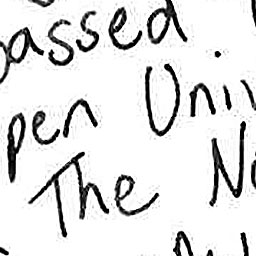 passed
pen Uni
The N